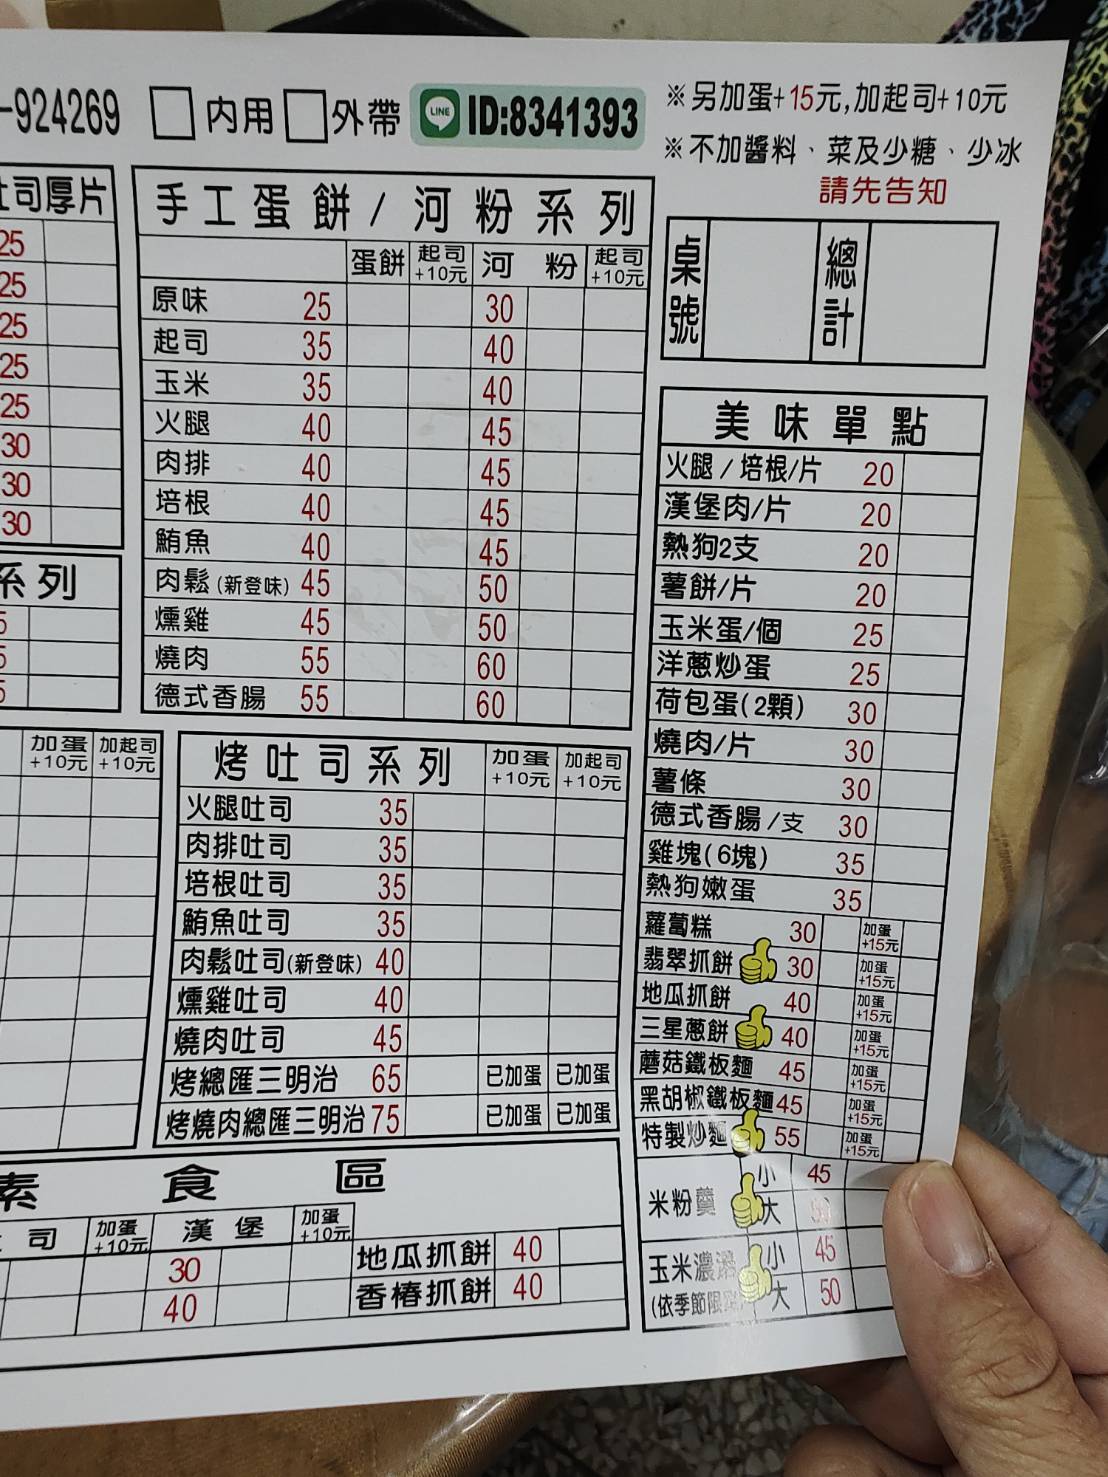 -924269 □內用 □外帶 LINE ID:8341393
※另加蛋+15元,加起司+10元
※不加醬料、菜及少糖、少冰
請先告知
桌號 總計
司厚片
25
25
25
25
25
30
30
30
系列
5
5
5
加蛋+10元 加起司+10元
手工蛋餅/河粉系列
蛋餅 起司+10元 河粉 起司+10元
原味 25 30
起司 35 40
玉米 35 40
火腿 40 45
肉排 40 45
培根 40 45
鮪魚 40 45
肉鬆(新登味) 45 50
燻雞 45 50
燒肉 55 60
德式香腸 55 60
烤吐司系列 加蛋+10元 加起司+10元
火腿吐司 35
肉排吐司 35
培根吐司 35
鮪魚吐司 35
肉鬆吐司(新登味) 40
燻雞吐司 40
燒肉吐司 45
烤總匯三明治 65 已加蛋 已加蛋
烤燒肉總匯三明治 75 已加蛋 已加蛋
素食區
司 加蛋+10元 漢堡 加蛋+10元
30 地瓜抓餅 40
40 香椿抓餅 40
美味單點
火腿/培根/片 20
漢堡肉/片 20
熱狗2支 20
薯餅/片 20
玉米蛋/個 25
洋蔥炒蛋 25
荷包蛋(2顆) 30
燒肉/片 30
薯條 30
德式香腸/支 30
雞塊(6塊) 35
熱狗嫩蛋 35
蘿蔔糕 30 加蛋+15元
翡翠抓餅 30 加蛋+15元
地瓜抓餅 40 加蛋+15元
三星蔥餅 40 加蛋+15元
蘑菇鐵板麵 45 加蛋+15元
黑胡椒鐵板麵 45 加蛋+15元
特製炒麵 55 加蛋+15元
米粉羹 小 45
大
玉米濃湯 小 45
(依季節限 大 50